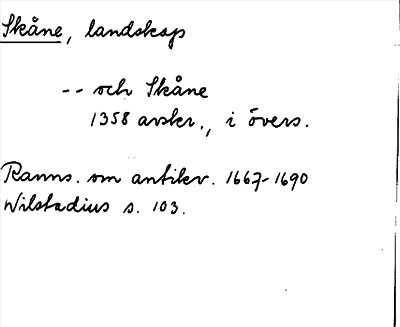 Skåne, landskap
-- och Skåne
1358 avskr., i övers.
Ranns. om antikv. 1667-1690
Wilstadius s. 103.